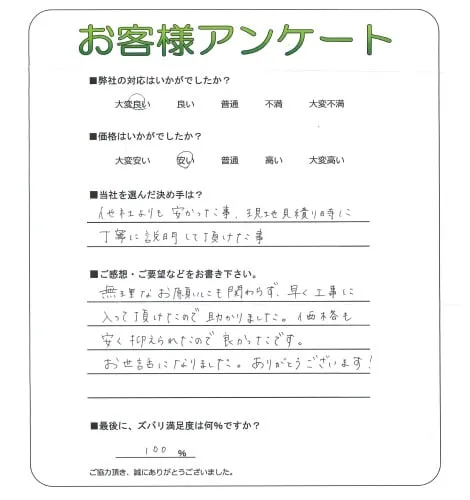 お客様アンケート
■弊社の対応はいかがでしたか？
大変良い 良い 普通 不満 大変不満
■価格はいかがでしたか？
大変安い 安い 普通 高い 大変高い
■当社を選んだ決め手は？
他社よりも安かった事、現地見積り時に
丁寧に説明して頂けた事
■ご感想・ご要望などをお書き下さい。
無理なお願いにも関わらず、早く工事に
入って頂けたので助かりました。価格も
安く抑えられたので良かったです。
お世話になりました。ありがとうございます！
■最後に、ズバリ満足度は何％ですか？
100 ％
ご協力頂き、誠にありがとうございました。